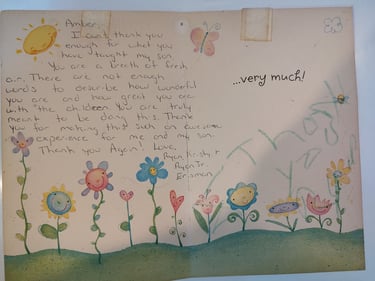 Amber,
I can't thank you
enough for what you
have taught my son.
You are a breath of fresh
air. There are not enough
words to describe how wonderful
you are and how great you are
with the children. You are truly
meant to be doing this. Thank
you for making this such an awesome
experience for me and my son.
Thank you Again! Love,
Ryan Jr.
Erisman
...very much!
Thank